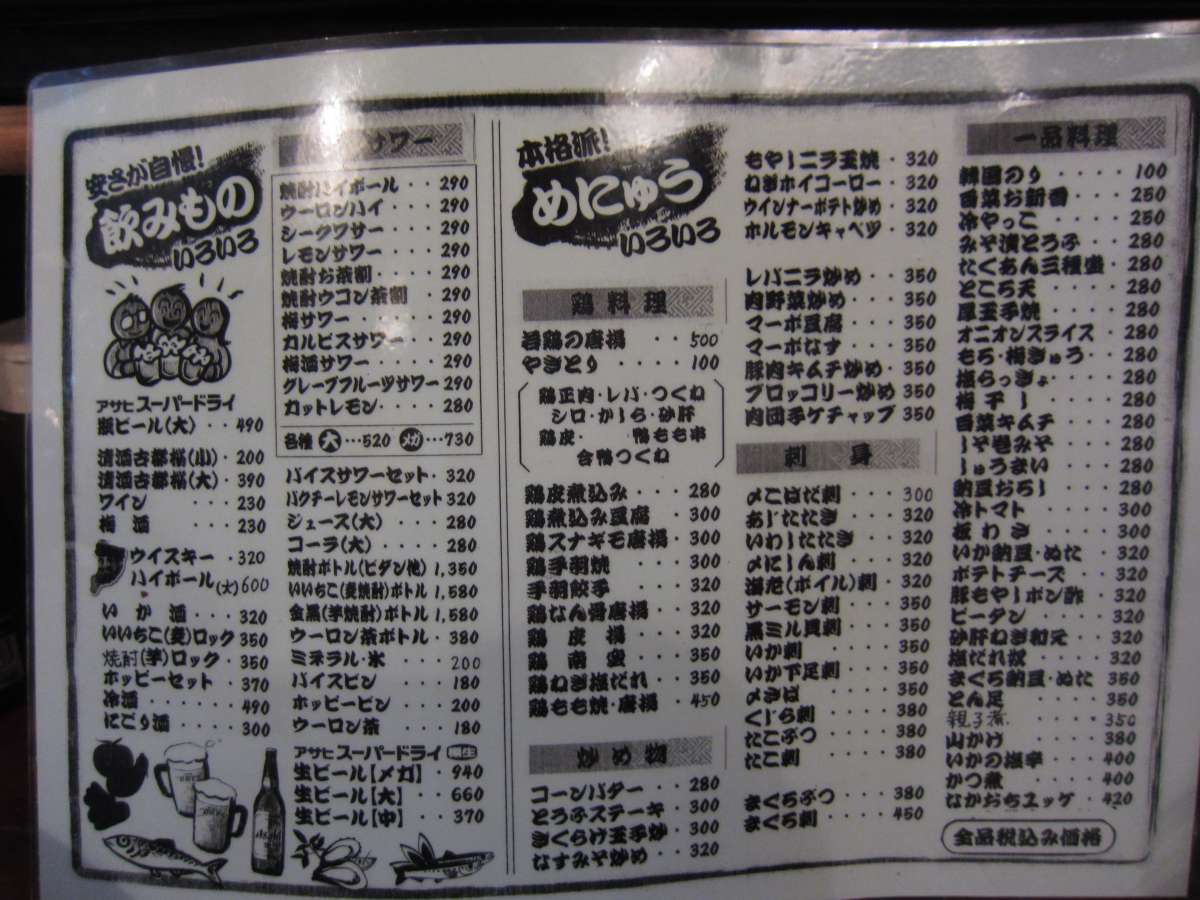 安さが自慢!
飲みもの
いろいろ
アサヒスーパードライ
瓶ビール(大)・・490
清酒古都桜(小)・200
清酒古都桜(大)・390
ワイン・・・・230
梅酒・・・・230
ウイスキー・320
ハイボール(大)600
いか酒・・・320
いいちこ(麦)ロック 350
焼酎(芋)ロック・350
ホッピーセット・370
冷酒・・・・・490
にごり酒・・・300
サワー
焼酎ハイボール・・290
ウーロンハイ・・・290
シークワサー・・・290
レモンサワー・・・290
焼酎お茶割・・・290
焼酎ウコン茶割・290
梅サワー・・・・290
カルピスサワー・・290
梅酒サワー・・・290
グレープフルーツサワー290
カットレモン・・・・280
各種 大…520 メガ…730
バイスサワーセット・320
バクチーレモンサワーセット 320
ジュース(大)・・・280
コーラ(大)・・・・280
焼酎ボトル(ビダン他)1,350
いいちこ(麦焼酎)ボトル 1,580
金黒(芋焼酎)ボトル 1,580
ウーロン茶ボトル・380
ミネラル・氷・・・200
バイスビン・・・180
ホッピービン・・・200
ウーロン茶・・・180
アサヒスーパードライ 樽生
生ビール【メガ】・940
生ビール【大】・・660
生ビール【中】・・370
本格派!
めにゅう
いろいろ
鶏料理
若鶏の唐揚・・500
やきとり・・・・100
鶏正肉・レバ・つくね
シロ・かしら・砂肝
鶏皮・ 鴨もも串
合鴨つくね
鶏皮煮込み・・・280
鶏煮込み豆腐・・300
鶏スナギモ唐揚・300
鶏手羽焼・・・300
手羽餃子・・・320
鶏なん骨唐揚・・320
鶏皮揚・・・320
鶏南蛮・・・350
鶏ねぎ塩だれ・・350
鶏もも焼・唐揚・450
炒め物
コーンバター・・280
とうふステーキ・300
きくらげ玉子炒・300
なすみそ炒め・・320
もやしニラ玉焼・320
ねぎホイコーロー・320
ウインナーポテト炒め・320
ホルモンキャベツ・320
レバニラ炒め・・350
肉野菜炒め・・・350
マーボ豆腐・・・350
マーボなす・・・350
豚肉キムチ炒め・350
ブロッコリー炒め・350
肉団子ケチャップ 350
刺身
〆こはだ刺・・・300
あじたたき・・・320
いわしたたき・・320
〆にしん刺・・・320
海老(ボイル)刺・320
サーモン刺・・・350
黒ミル貝刺・・・350
いか刺・・・・350
いか下足刺・・・350
〆さば・・・・350
くじら刺・・・・380
たこぶつ・・・・380
たこ刺・・・・380
まぐろぶつ・・・380
まぐろ刺・・・・450
一品料理
韓国のり・・・・100
白菜お新香・・・250
冷やっこ・・・・250
みそ漬とうふ・・280
たくあん三種盛・280
ところ天・・・・280
厚玉子焼・・・・280
オニオンスライス・280
もろ・梅きゅう・・280
塩らっきょ・・・280
梅干し・・・・280
白菜キムチ・・・280
しそ巻みそ・・・280
しゅうまい・・・280
納豆おろし・・・280
冷トマト・・・・300
板わさ・・・・300
いか納豆・ぬた・320
ポテトチーズ・・320
豚もやしポン酢・320
ピータン・・・・320
砂肝ねぎ和え・・320
塩だれ奴・・・320
まぐろ納豆・ぬた 350
とん足・・・・350
親子煮・・・・350
山かけ・・・・380
いかの塩辛・・・400
かつ煮・・・・400
なかおちユッケ・420
全品税込み価格